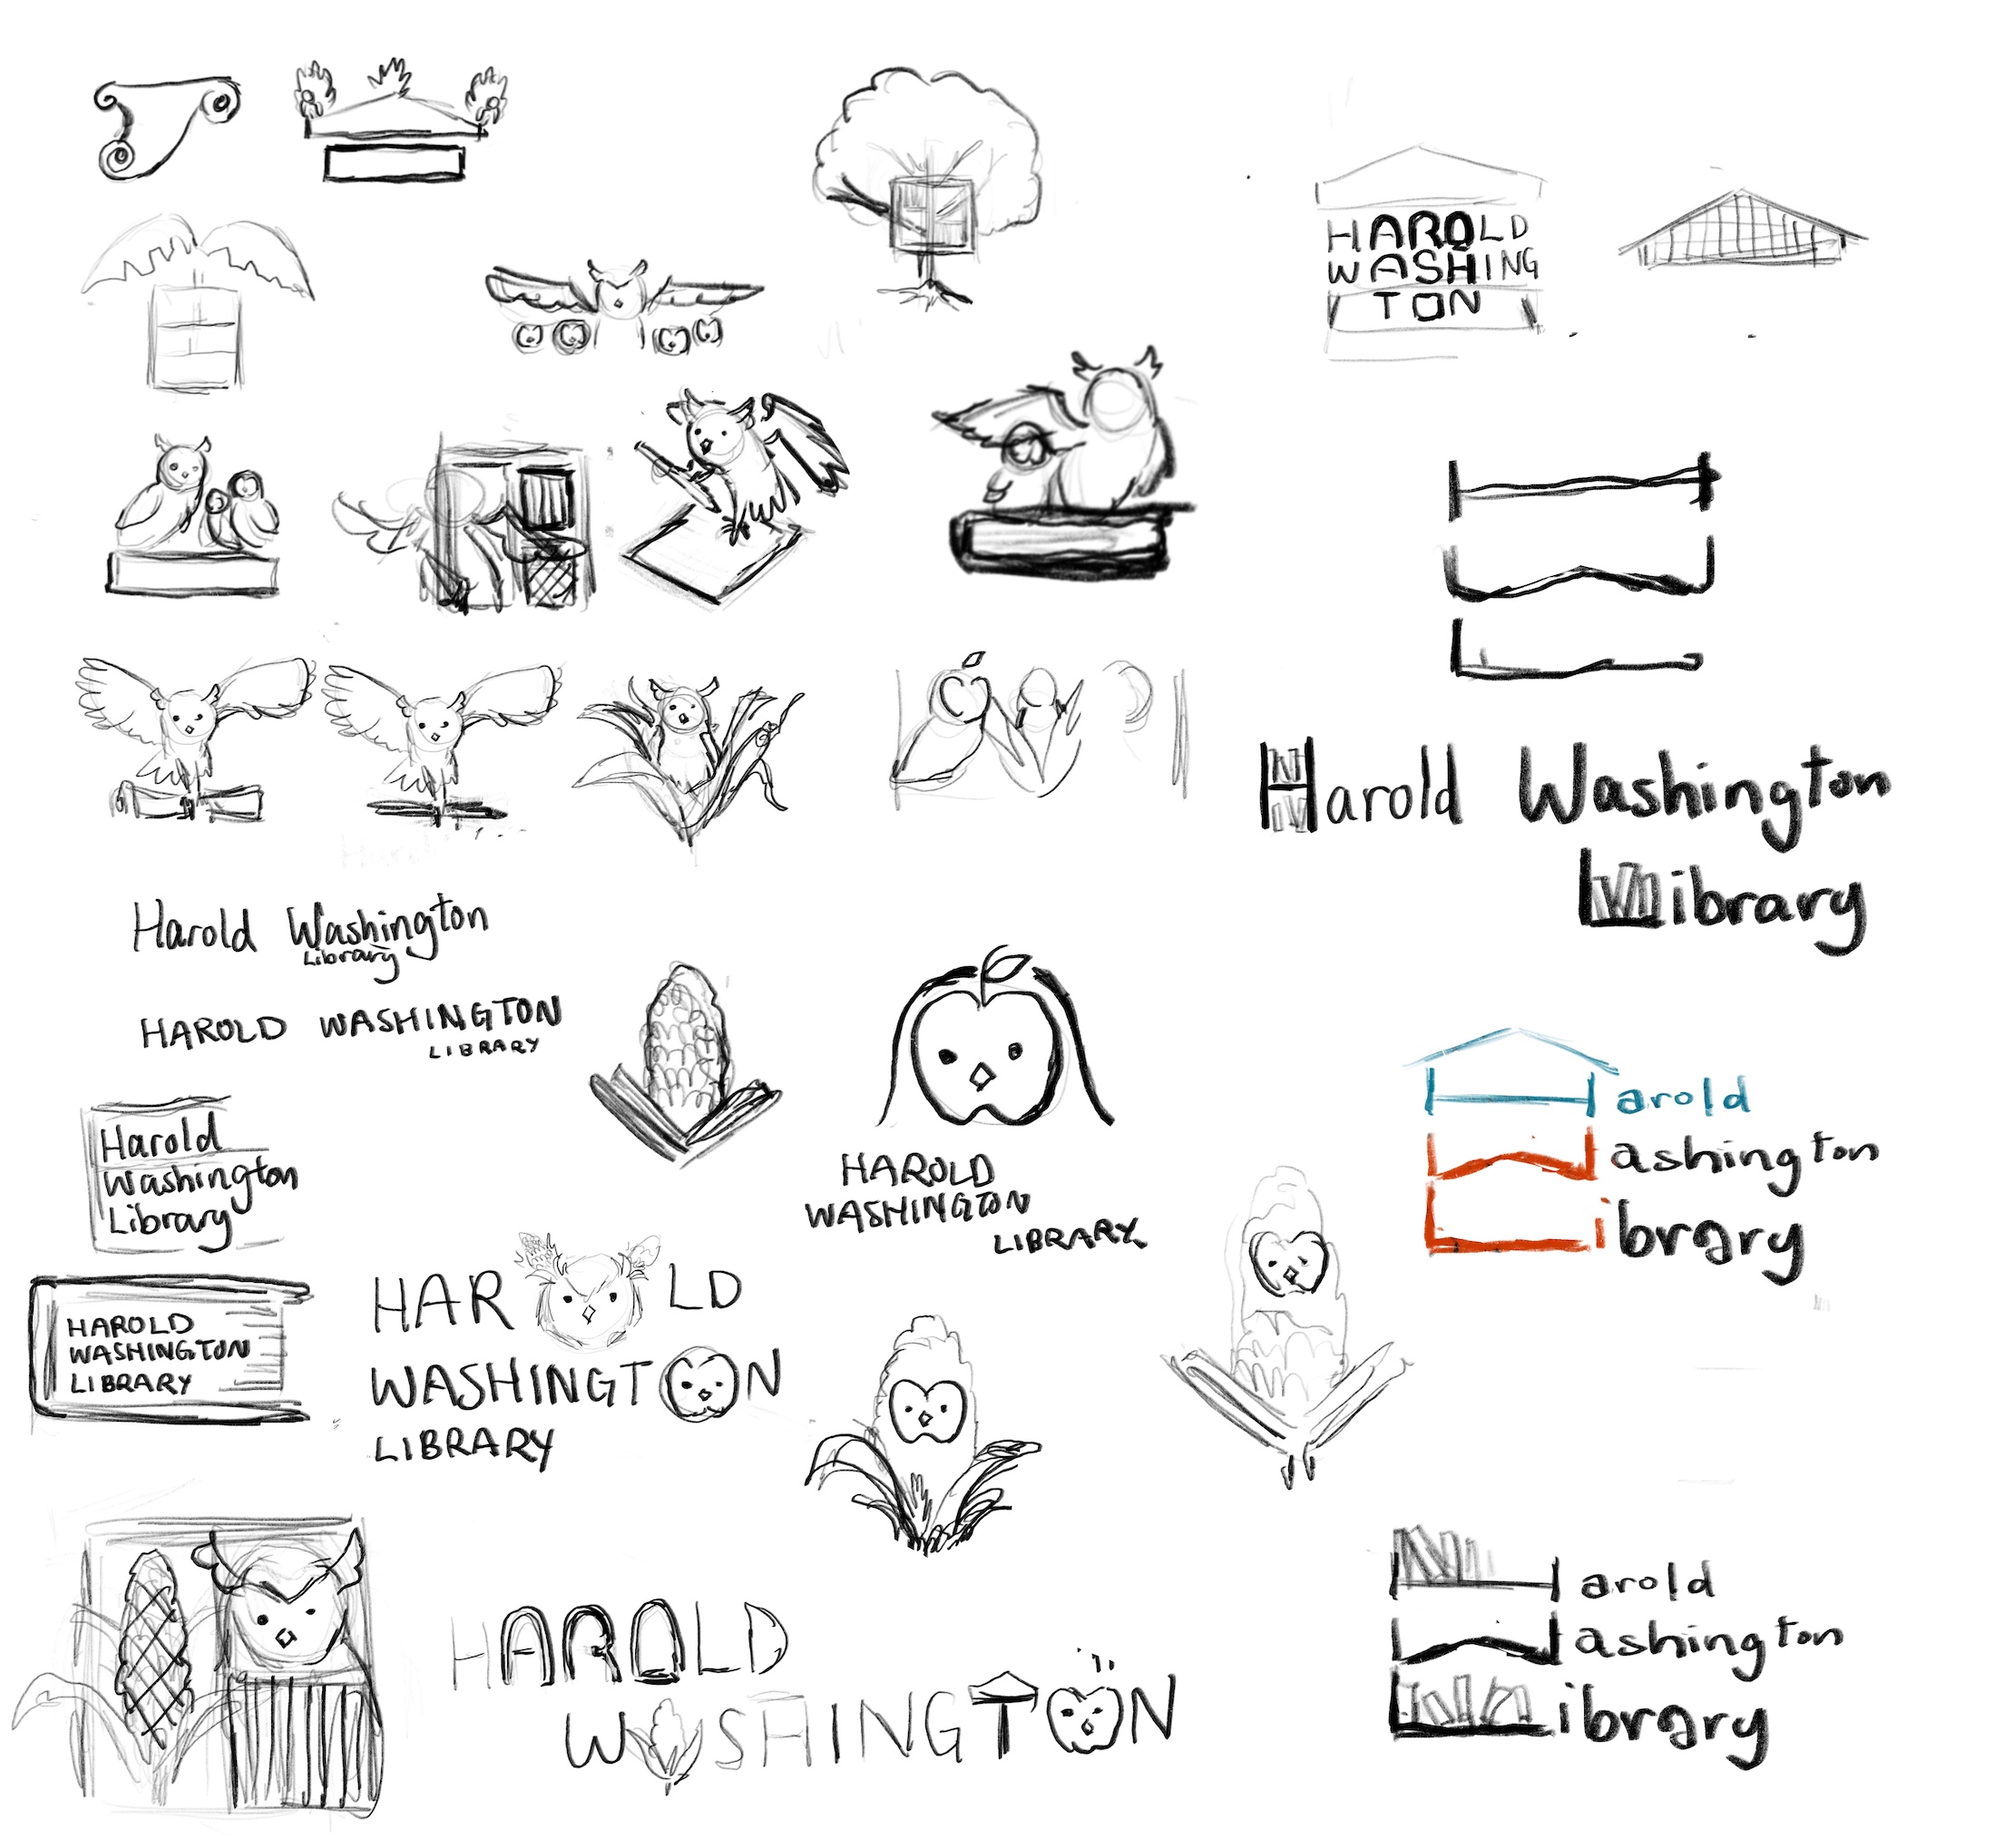 HAROLD
WASHING
TON
Harold Washington
Library
Harold Washington
Library
HAROLD WASHINGTON
LIBRARY
Harold
Washington
Library
HAROLD
WASHINGTON
LIBRARY
arold
ashington
ibrary
HAROLD
WASHINGTON
LIBRARY
HAR LD
WASHINGTON
LIBRARY
HAROLD
W SHINGTON
arold
ashington
Library